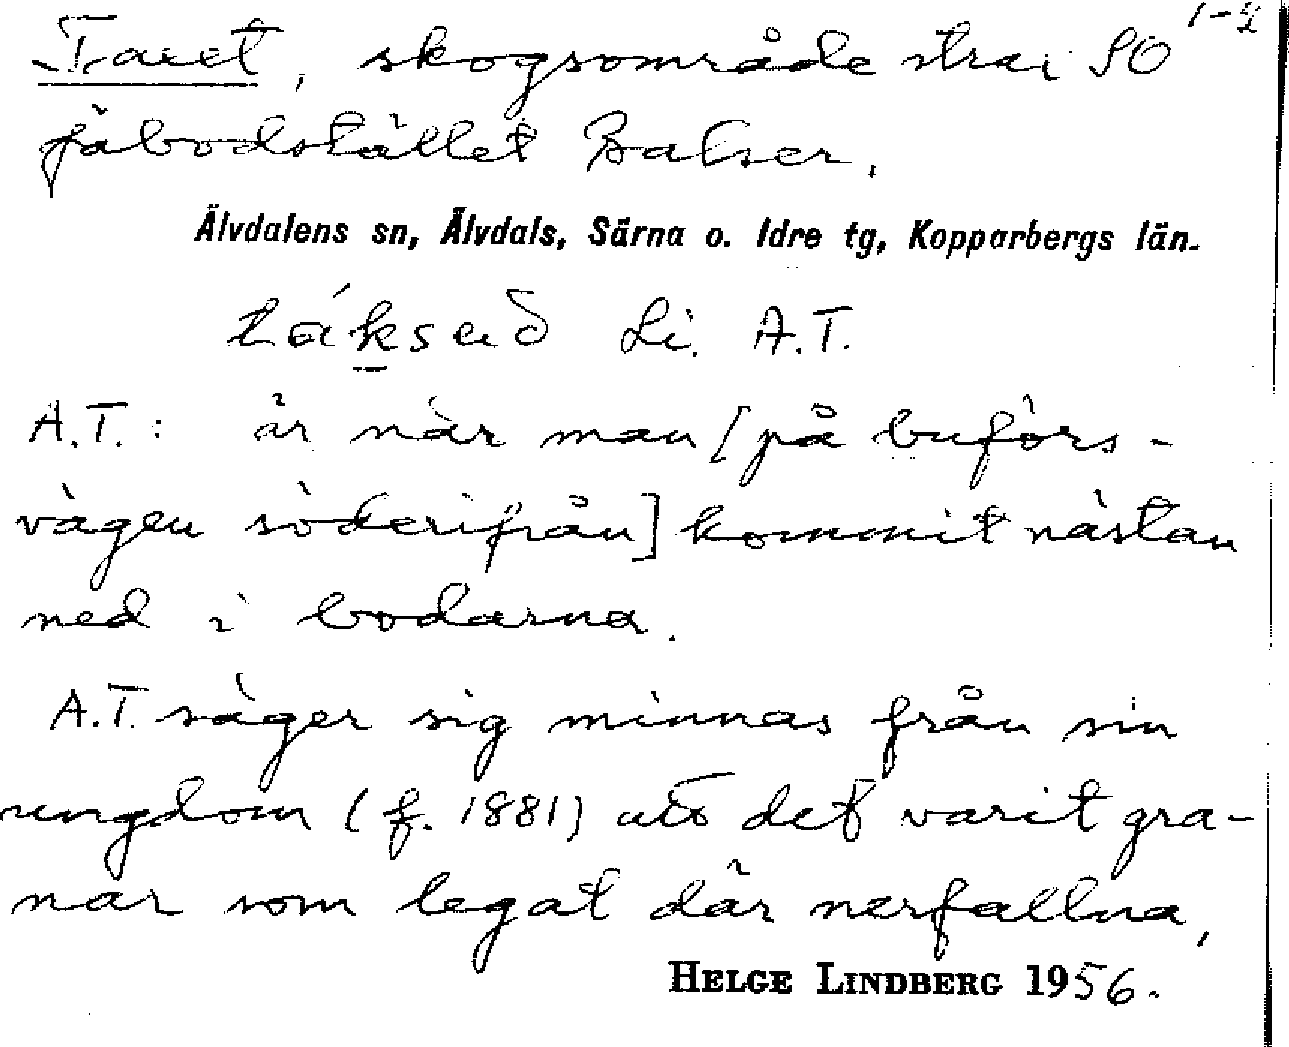 1-2
skogsområde strax SO
fäbodstället Balser.
Älvdalens sn, Älvdals, Särna o. Idre tg, Kopparbergs län.
Li. A.T.
A.T.: är när man [på buförs-
vägen söderifrån] kommit nästan
ned i bodarna.
A.T. säger sig minnas från sin
ungdom (f. 1881) att det varit gra-
nar som legat där nerfallna,
HELGE LINDBERG 1956.